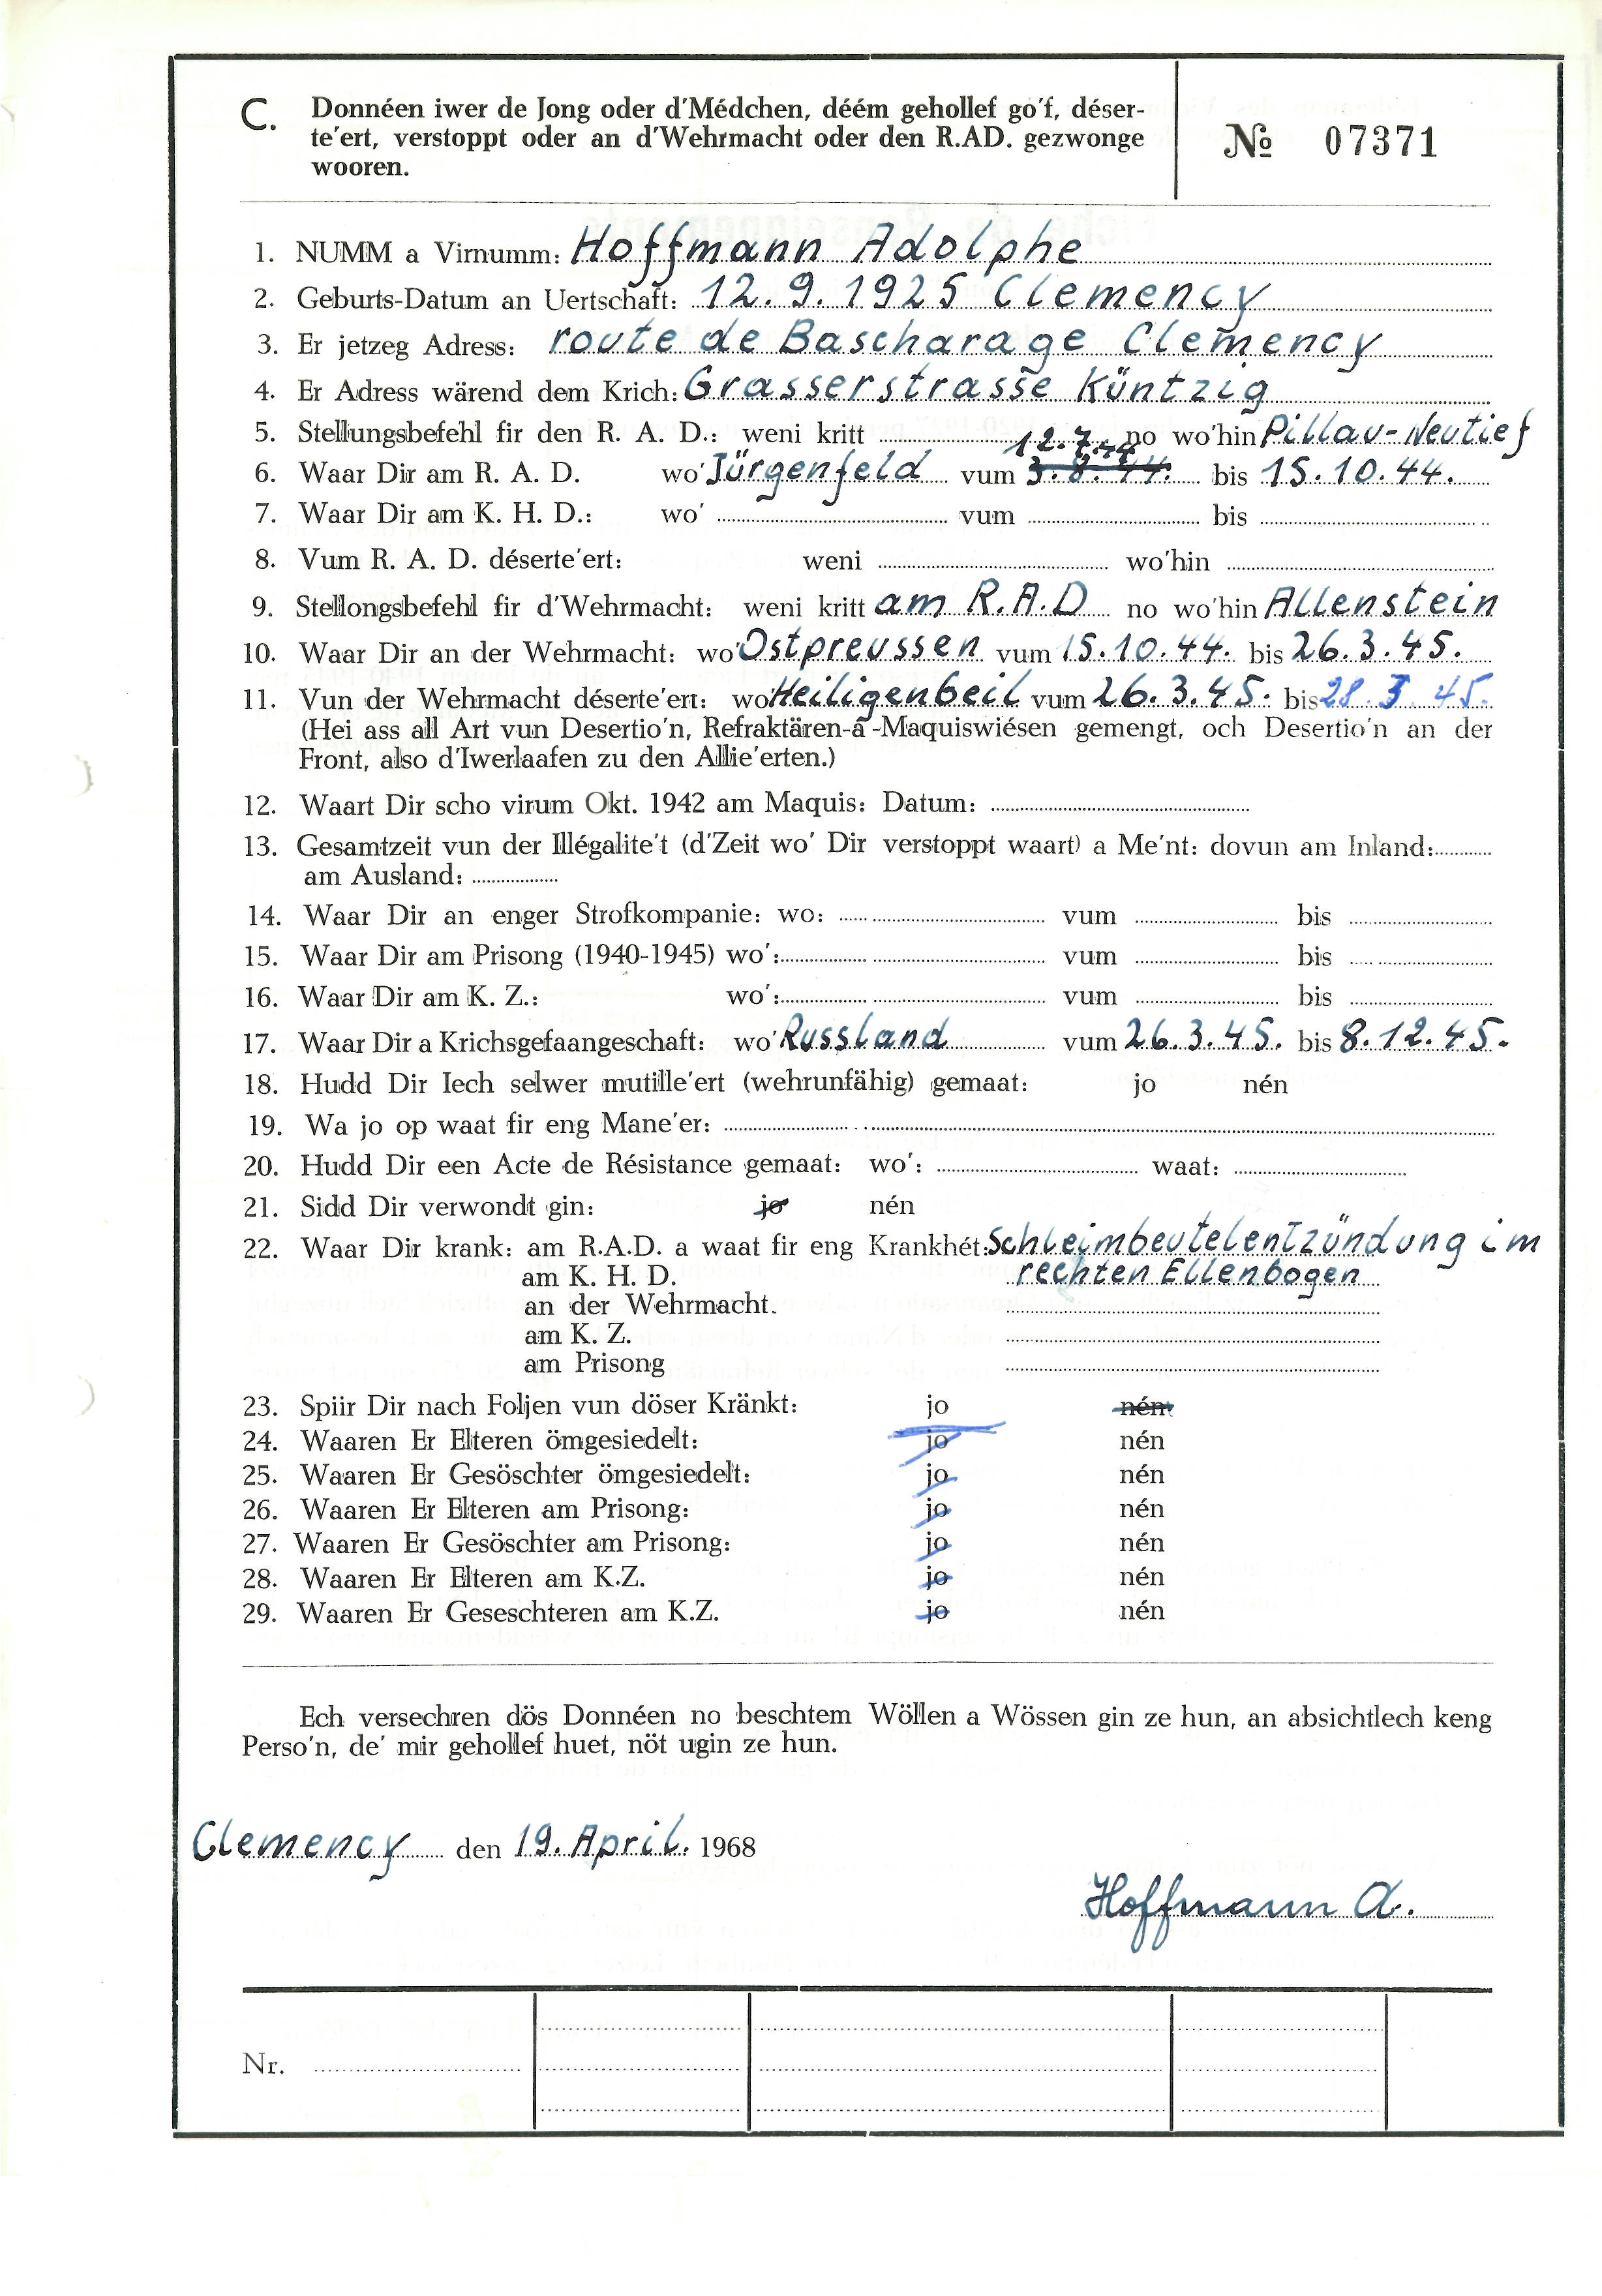 C. Donnéen iwer de Jong oder d'Médchen, déém gehollef go'f, déser-
te'ert, verstoppt oder an d'Wehrmacht oder den R.AD. gezwonge
wooren.
№ 07371
1. NUMM a Virnumm: Hoffmann Adolphe
2. Geburts-Datum an Uertschaft: 12.9.1925 Clemency
3. Er jetzeg Adress: route de Bascharage Clemency
4. Er Adress wärend dem Krich: Grasserstrasse Küntzig
5. Stellungsbefehl fir den R. A. D.: weni kritt no wo'hin Pillau-Neutief
12.7.44
6. Waar Dir am R. A. D. wo' Jürgenfeld vum 3.8.44. bis 15.10.44.
7. Waar Dir am K. H. D.: wo' vum bis
8. Vum R. A. D. déserte'ert: weni wo'hin
9. Stellongsbefehl fir d'Wehrmacht: weni kritt am R.A.D no wo'hin Allenstein
10. Waar Dir an der Wehrmacht: wo' Ostpreussen vum 15.10.44. bis 26.3.45.
11. Vun der Wehrmacht déserte'ert: wo' Heiligenbeil vum 26.3.45. bis 28.3.45.
(Hei ass all Art vun Desertio'n, Refraktären-a-Maquiswiésen gemengt, och Desertio'n an der
Front, also d'Iwerlaafen zu den Allie'erten.)
12. Waart Dir scho virum Okt. 1942 am Maquis: Datum:
13. Gesamtzeit vun der Illégalite't (d'Zeit wo' Dir verstoppt waart) a Me'nt: dovun am Inland:
am Ausland:
14. Waar Dir an enger Strofkompanie: wo: vum bis
15. Waar Dir am Prisong (1940-1945) wo': vum bis
16. Waar Dir am K. Z.: wo': vum bis
17. Waar Dir a Krichsgefaangeschaft: wo' Russland vum 26.3.45. bis 8.12.45.
18. Hudd Dir Iech selwer mutille'ert (wehrunfähig) gemaat: jo nén
19. Wa jo op waat fir eng Mane'er:
20. Hudd Dir een Acte de Résistance gemaat: wo': waat:
21. Sidd Dir verwondt gin: jo nén
22. Waar Dir krank: am R.A.D. a waat fir eng Krankhét: Schleimbeutelentzündung im
am K. H. D. rechten Ellenbogen
an der Wehrmacht.
am K. Z.
am Prisong
23. Spiir Dir nach Foljen vun döser Kränkt: jo nén
24. Waaren Er Elteren ömgesiedelt: jo nén
25. Waaren Er Gesöschter ömgesiedelt: jo nén
26. Waaren Er Elteren am Prisong: jo nén
27. Waaren Er Gesöschter am Prisong: jo nén
28. Waaren Er Elteren am K.Z. jo nén
29. Waaren Er Geseschteren am K.Z. jo nén
Ech versechren dös Donnéen no beschtem Wöllen a Wössen gin ze hun, an absichtlech keng
Perso'n, de' mir gehollef huet, nöt ugin ze hun.
Clemency den 19. April. 1968
Hoffmann A.
Nr.